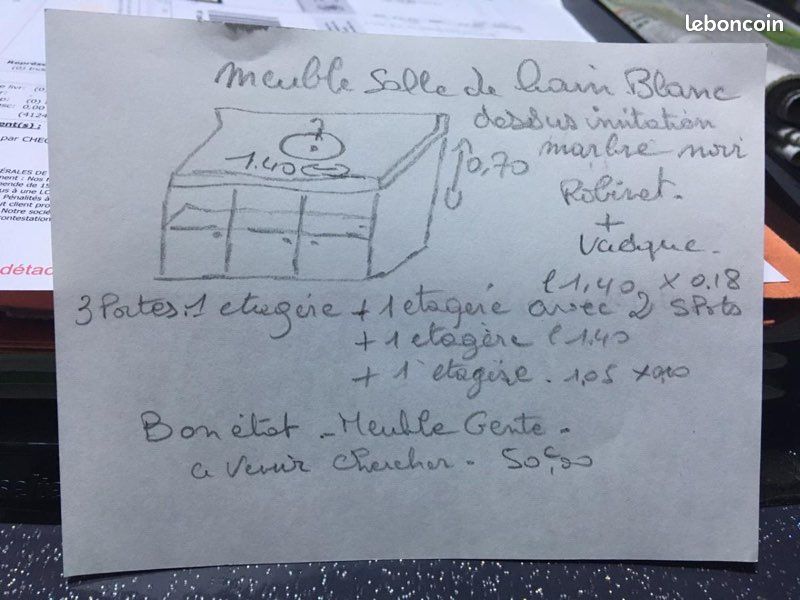 leboncoin
Meuble Salle de bain Blanc
dessus imitation
marbre noir
1.40
0,70
Robinet.
+
Vasque.
l 1,40 x 0.18
3 Portes. 1 etagère + 1 etagère avec 2 Spots
+ 1 etagère l 1.40
+ 1 etagère. 1,05 x 0,20
Bon état - Meuble Gente -
a venir chercher - 50€,00
détac